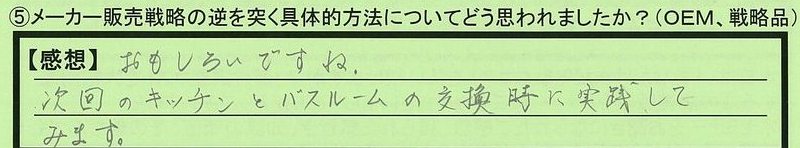 ⑤メーカー販売戦略の逆を突く具体的方法についてどう思われましたか?(OEM、戦略品)
【感想】おもしろいですね.
次回のキッチンとバスルームの交換時に実践して
みます。